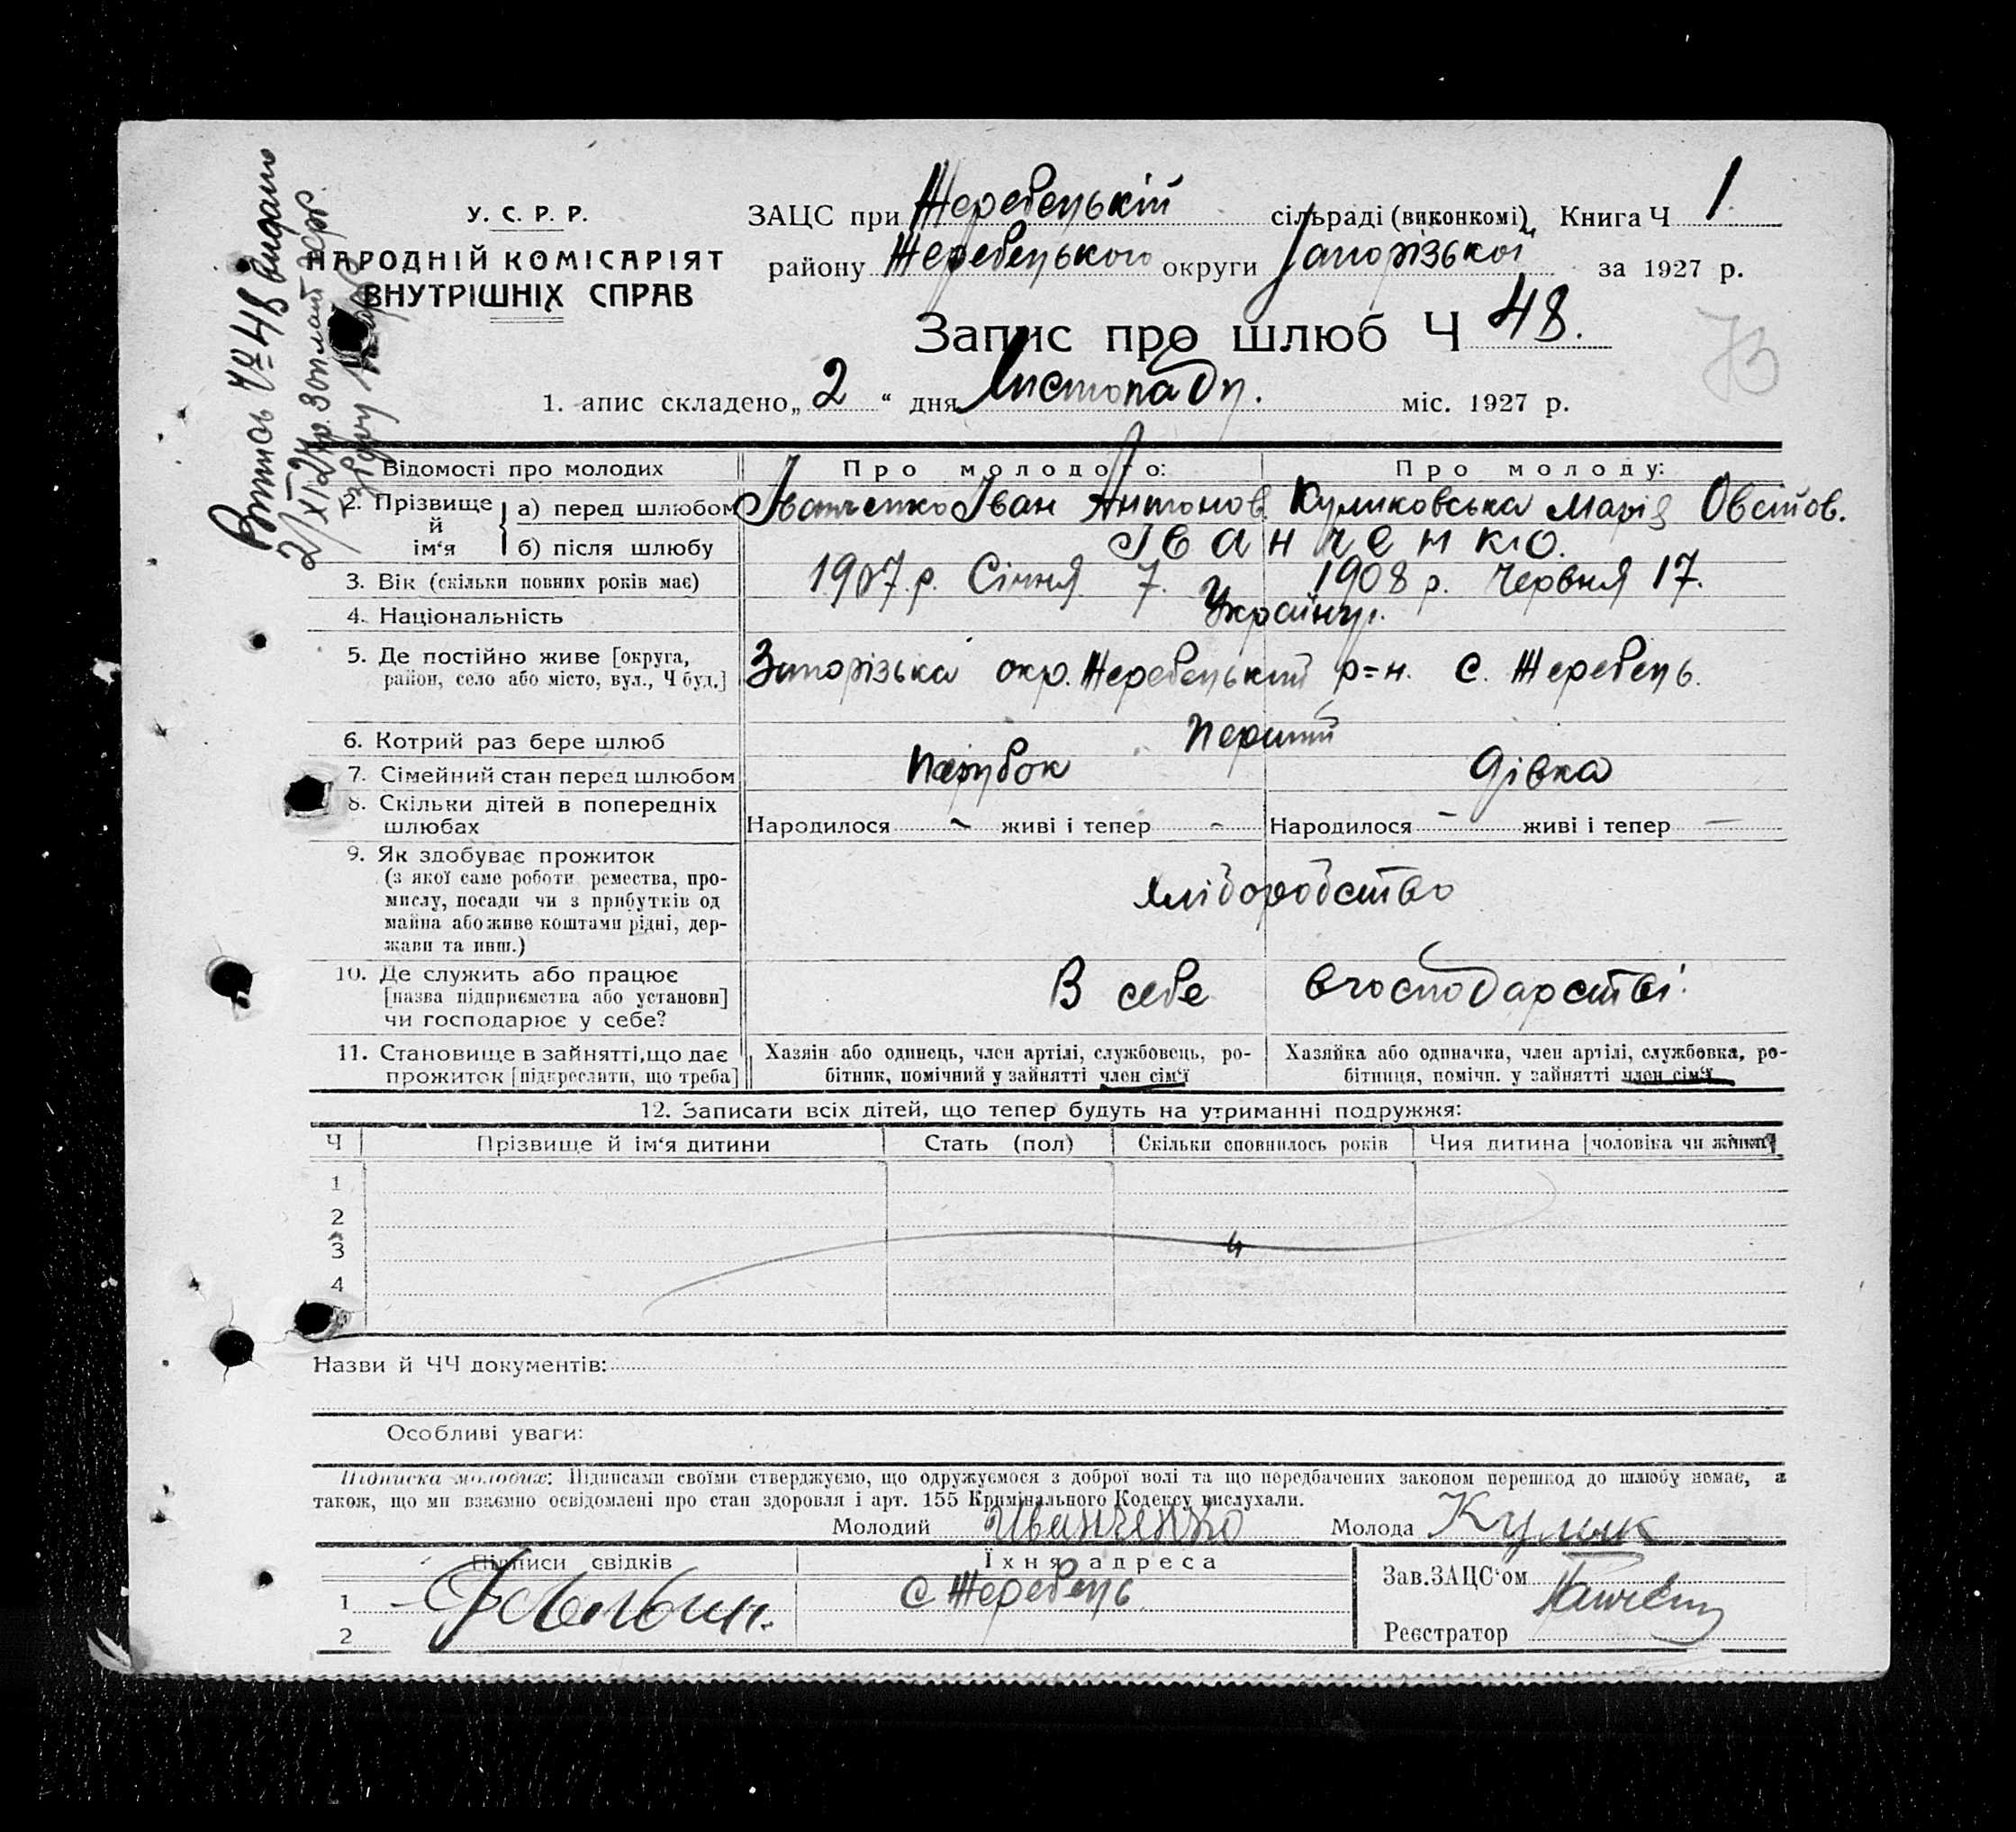 У. С. Р. Р.
НАРОДНІЙ КОМІСАРІЯТ
ВНУТРІШНІХ СПРАВ
ЗАЦС при Жеребецькій сільраді (виконкомі) Книга Ч 1
району Жеребецького округи Запорізької за 1927 р.
Запис про шлюб Ч 48.
1. апис складено „2“ дня Листопаду. міс. 1927 р.
Випись № 48 видано
2/XI 27 р.
Відомості про молодих
Про молодого:
Про молоду:
2. Прізвище й ім'я
а) перед шлюбом Іванченко Іван Антонов. Куликовська Марія
б) після шлюбу Іванченко.
3. Вік (скільки повних років має) 1907.р. Січня 7. 1908 р. Червня 17.
4. Національність Українц.
5. Де постійно живе [округа, Запорізька окр. Жеребецький р=н. с. Жеребець.
район, село або місто, вул., Ч буд.]
6. Котрий раз бере шлюб перший
7. Сімейний стан перед шлюбом парубок дівка
8. Скільки дітей в попередніх
шлюбах Народилося - живі і тепер - Народилося - живі і тепер -
9. Як здобуває прожиток
(з якої саме роботи ремества, про-
мислу, посади чи з прибутків од хліборобство
майна або живе коштами рідні, дер-
жави та инш.)
10. Де служить або працює В себе вгосподарстві.
[назва підприємства або установи]
чи господарює у себе?
11. Становище в зайнятті,що дає Хазяін або одинець, член артілі, службовець, ро- Хазяйка або одиначка, член артілі, службовка, ро-
прожиток [підкреслити, що треба] бітник, помічний у зайнятті член сім'ї бітниця, помічн. у зайнятті член сім'ї
12. Записати всіх дітей, що тепер будуть на утриманні подружжя:
Ч Прізвище й ім'я дитини Стать (пол) Скільки сповнилось років Чия дитина [чоловіка чи жінки]
1
2
3
4
Назви й ЧЧ документів:
Особливі уваги:
Підписка молодих: Підписами своїми стверджуємо, що одружуємося з доброї волі та що передбачених законом перешкод до шлюбу немає, а
також, що ми взаємно освідомлені про стан здоровля і арт. 155 Кримінального Кодексу вислухали.
Молодий Иванченко Молода Кулик
Підписи свідків Їхня адреса Зав.ЗАЦС'ом
1 с Жеребець
2 Реєстратор